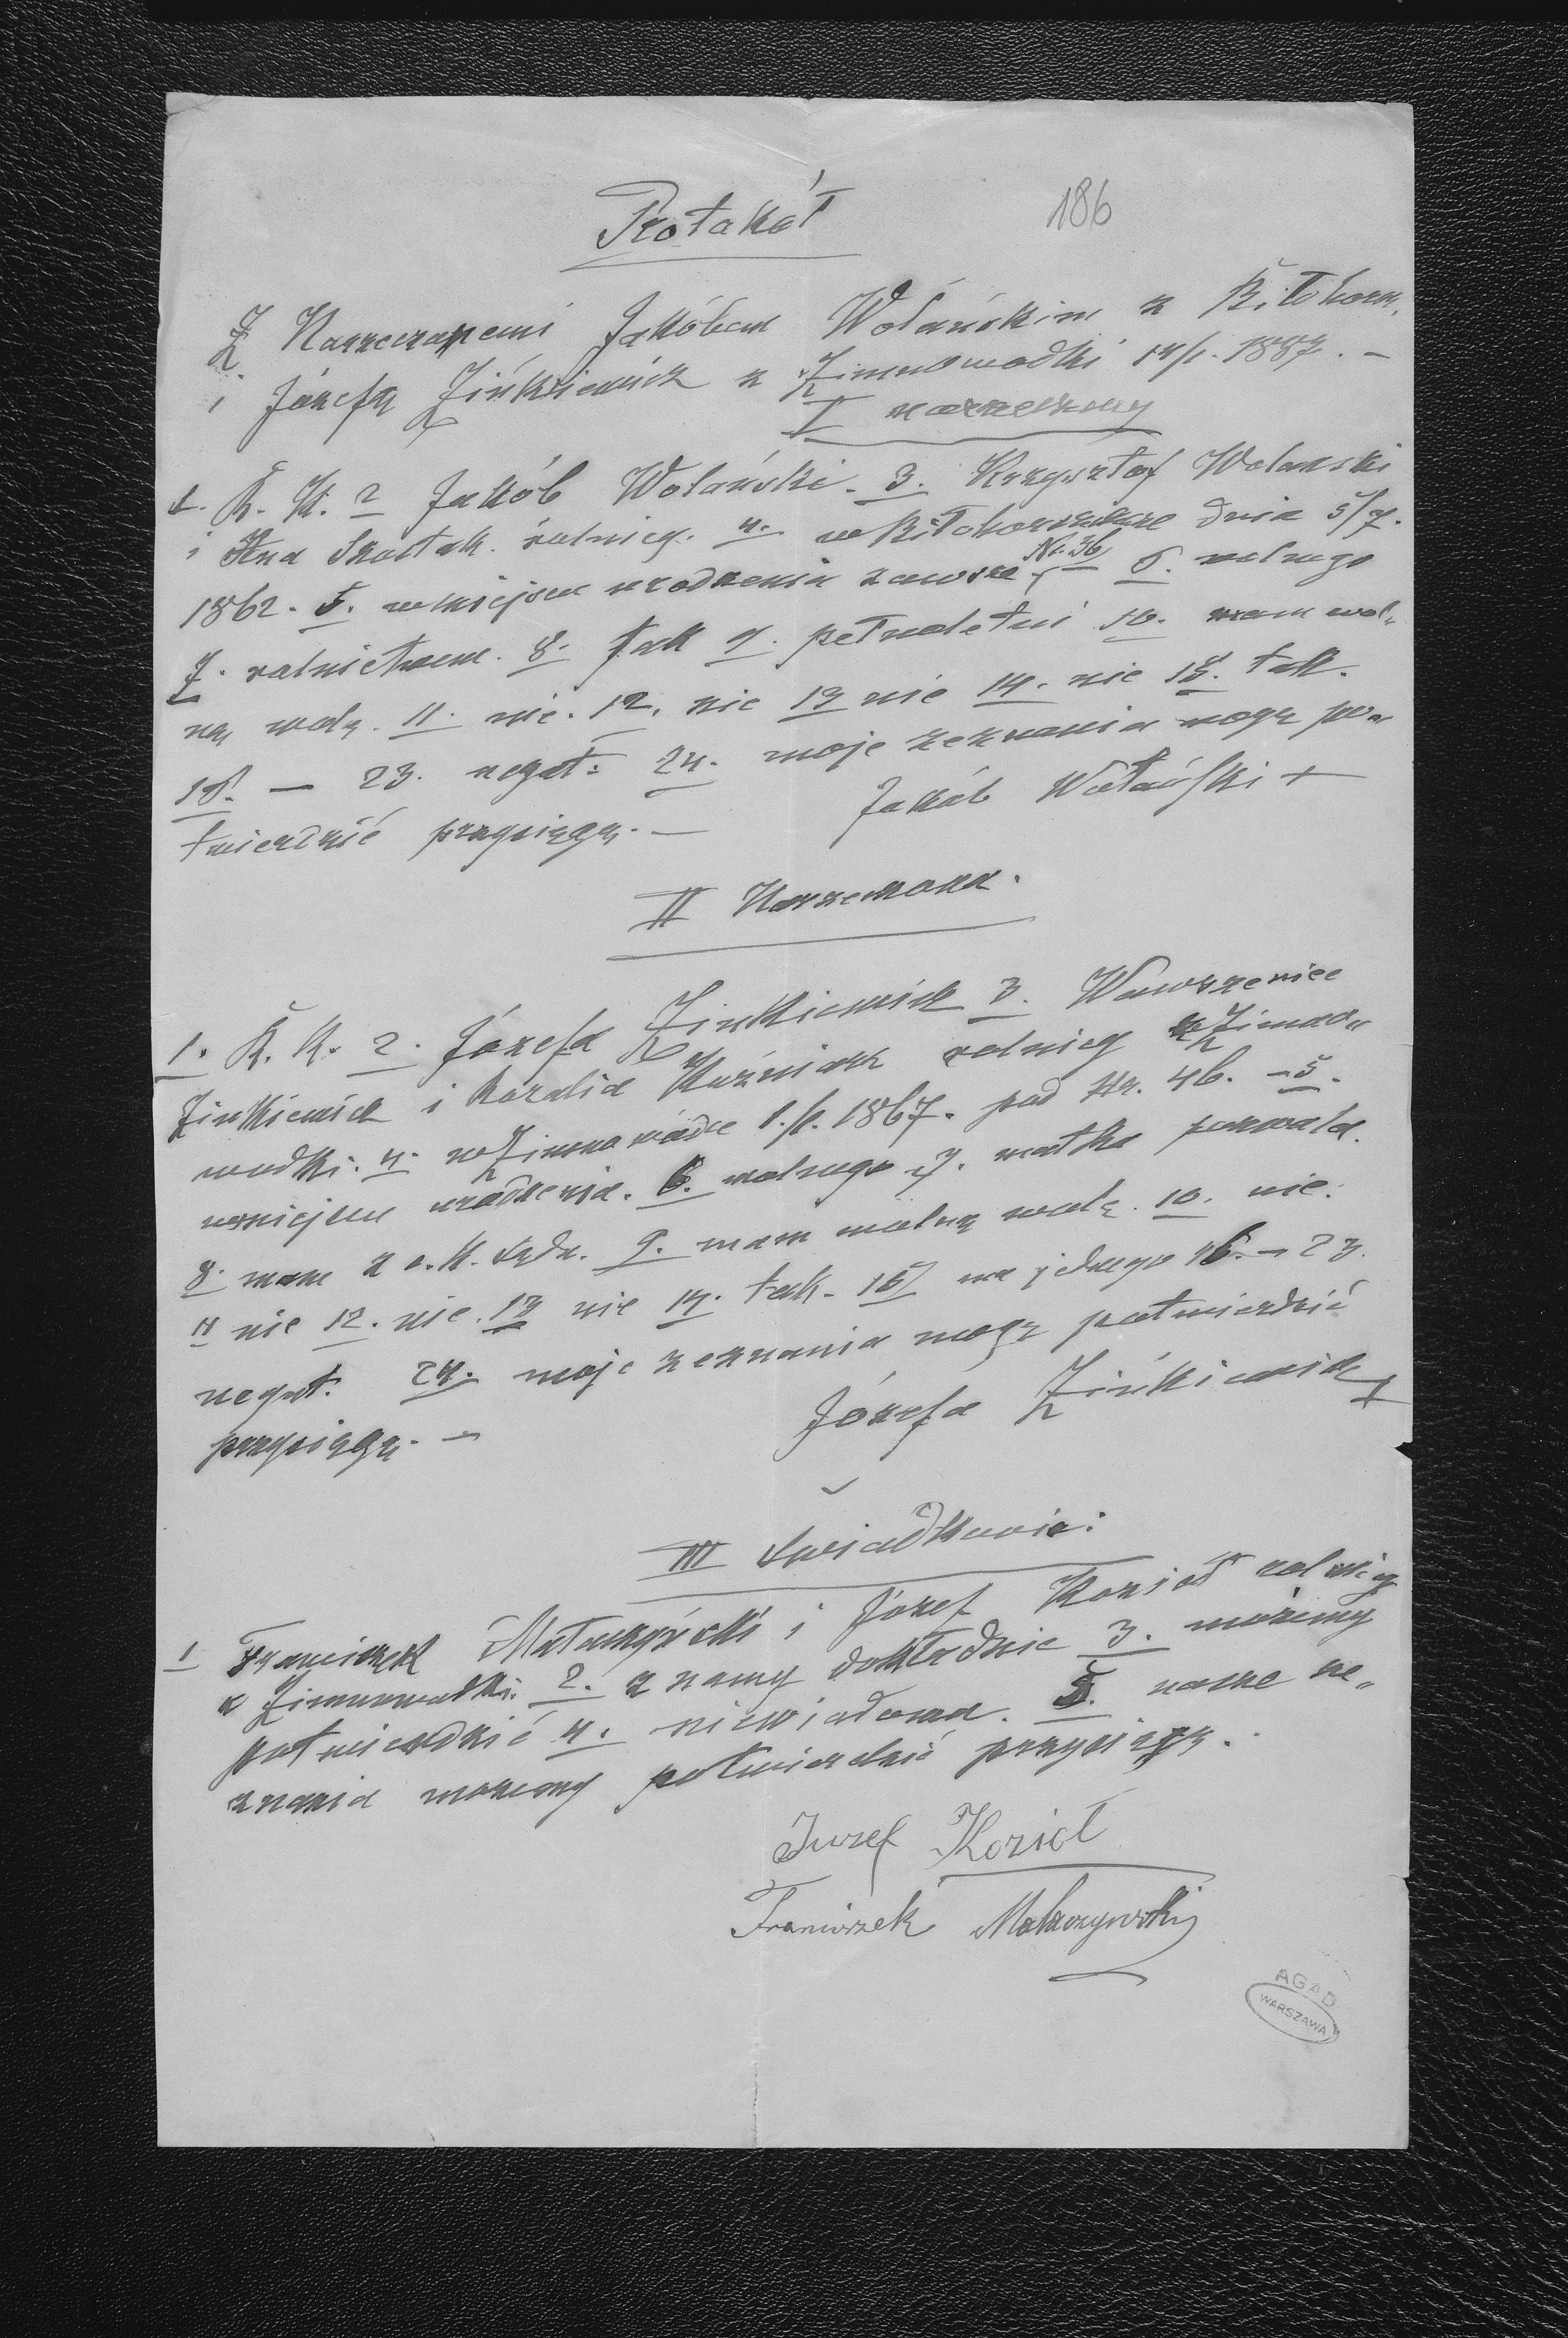 Protokół
186
Z Narzeczonemi Jakóbem Wolańskim z Biłohorsz.
i Józefą Zińkiewicz z Zimnowodki 14/1. 1887. —
I narzeczony
1. R. K. 2 Jakób Wolański. 3. Krzysztof Wolanski
i Ana rolnicy. 4. w Biłohorszcze dnia 5/7.
1862. 5. w miejscu urodzenia zawsze Nr. 36 6. wolnego
7. rolnictwem. 8. tak 9. pełnoletni 10. mam wol„
ną wolę. 11. nie. 12. nie 13 nie 14. nie 15. tak.
16. — 23. negat: 24. moje zeznania mogę po„
twierdzić przysięgą. —
Jakób Wolański +
II Narzeczona.
1. R. K. 2. Józefa Zinkiewicz 3. Wawrzeniec
Zinkiewicz i Rozalia Kuźniar rolnicy z Zimno„
wodki. 4. w Zimnowodce 1./1. 1867. pod Nr. 46. — 5.
w miejscu urodzenia. 6. wolnego 7. matka pozwala.
8. mam z c. K. sądu. 9. mam wolną wolę. 10. nie.
11 nie 12. nie. 13 nie 14. tak. 15 na jednego 16. — 23.
negat. 24. moje zeznania mogę potwierdzić
przysięgą. —
Józefa Zińkiewicz +
III Świadkowie:
1 Franciszek Małaczyński i Józef Kozioł rolnicy
z Zimnowodki. 2. znamy dokładnie 3. możemy
potwierdzić 4. niewiadoma. 5. nasze ze„
znania możemy potwierdzić przysięgą.
Juzef Kozioł
Franciszek Małaczynski
AGAD
WARSZAWA